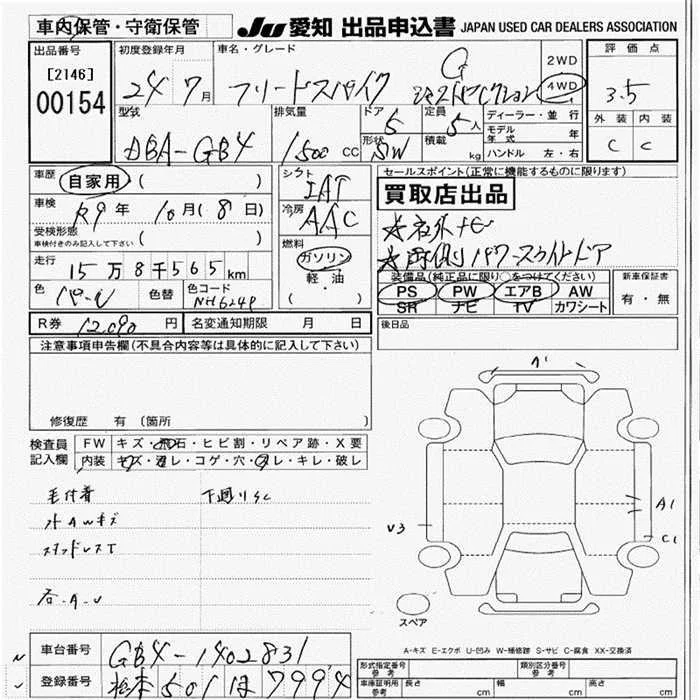 車内保管・守衛保管
JU 愛知 出品申込書 JAPAN USED CAR DEALERS ASSOCIATION
出品番号
[2146]
00154
初度登録年月
24 7月
車名・グレード
フリードスパイク G
ジャストセレクション
2WD
4WD
評価点
3.5
外装 内装
C C
型式
DBA-GB4
排気量
1500 CC
ドア
5
形状
SW
定員
5人
積載
kg
ディーラー・並行
モデル年式 年
ハンドル 左・右
車歴
自家用 ( )
車検
R9年 10月(8日)
受検形態
車検付きのみ記入して下さい ( )
走行
15万8千565km
色
パール
色替
色コード
NH624P
シフト
IAT
冷房
AAC
燃料
ガソリン
軽・油
( )
セールスポイント(正常に機能するものに限ります)
買取店出品
☆社外ナビ
☆両側パワースライドドア
装備品(純正品に限り○をつけてください)
PS PW エアB AW
SR ナビ TV カワシート
新車保証書
有・無
R券 12,090円 名変通知期限 月 日
後日品
注意事項申告欄(不具合内容等は具体的に記入して下さい)
修復歴 有(箇所 )
検査員記入欄
FW キズ・飛石・ヒビ割・リペア跡・X要
内装 キズ・汚レ・コゲ・穴・スレ・キレ・破レ
毛付着 下廻りSC
外AWキズ
スタッドレスT
A1
V3
A1
C1
スペア
A-キズ E-エクボ U-凹み W-補修跡 S-サビ C-腐食 XX-交換済
車台番号 GB4-1402831
登録番号 松本501ほ7994
形式指定番号
参考
類別区分番号
参考
車庫証明用
参考
長さ cm 幅 cm 高さ cm